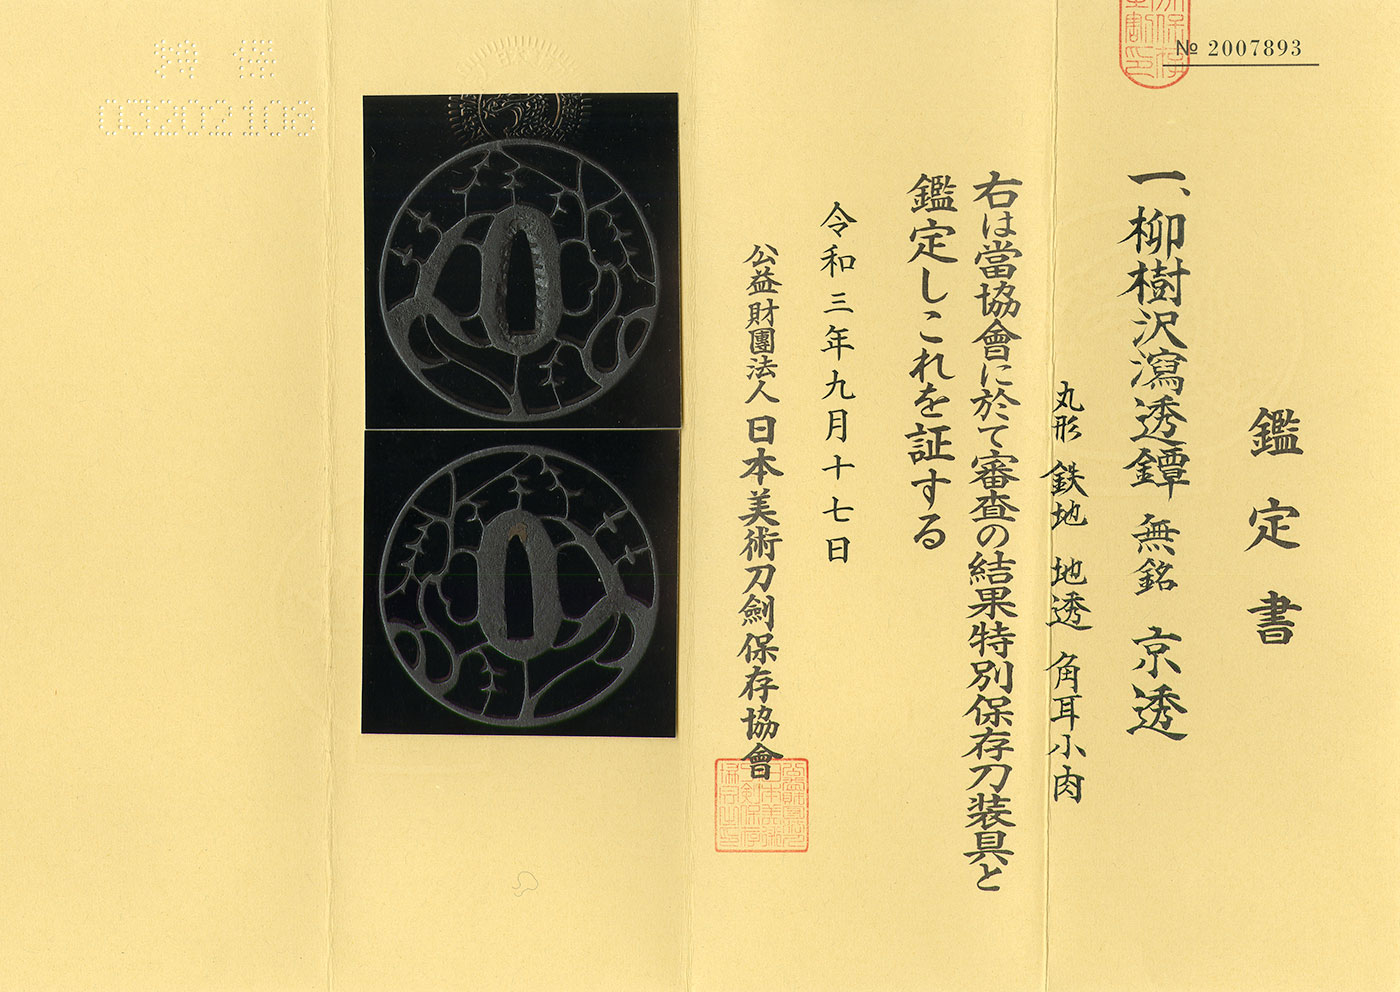 № 2007893
鑑定書
一、柳樹沢瀉透鐔 無銘 京透
丸形 鉄地 地透 角耳小肉
右は當協會に於て審査の結果特別保存刀装具と
鑑定しこれを証する
令和三年九月十七日
公益財團法人 日本美術刀劍保存協會
特保
03202106